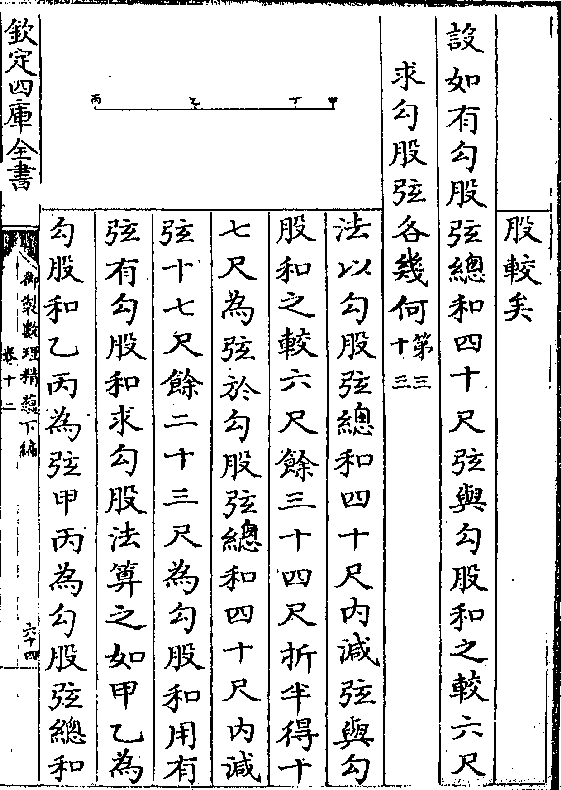 股較矣
設如有勾股弦總和四十尺弦與勾股和之較六尺
求勾股弦各幾何第三十三
法以勾股弦總和四十尺内減弦與勾
股和之較六尺餘三十四尺折半得十
七尺為弦於勾股弦總和四十尺内減
弦十七尺餘二十三尺為勾股和用有
弦有勾股和求勾股法算之如甲乙為
勾股和乙丙為弦甲丙為勾股弦總和
甲
丁
乙
丙
欽定四庫全書
御製數理精藴下編
卷十二
六十四